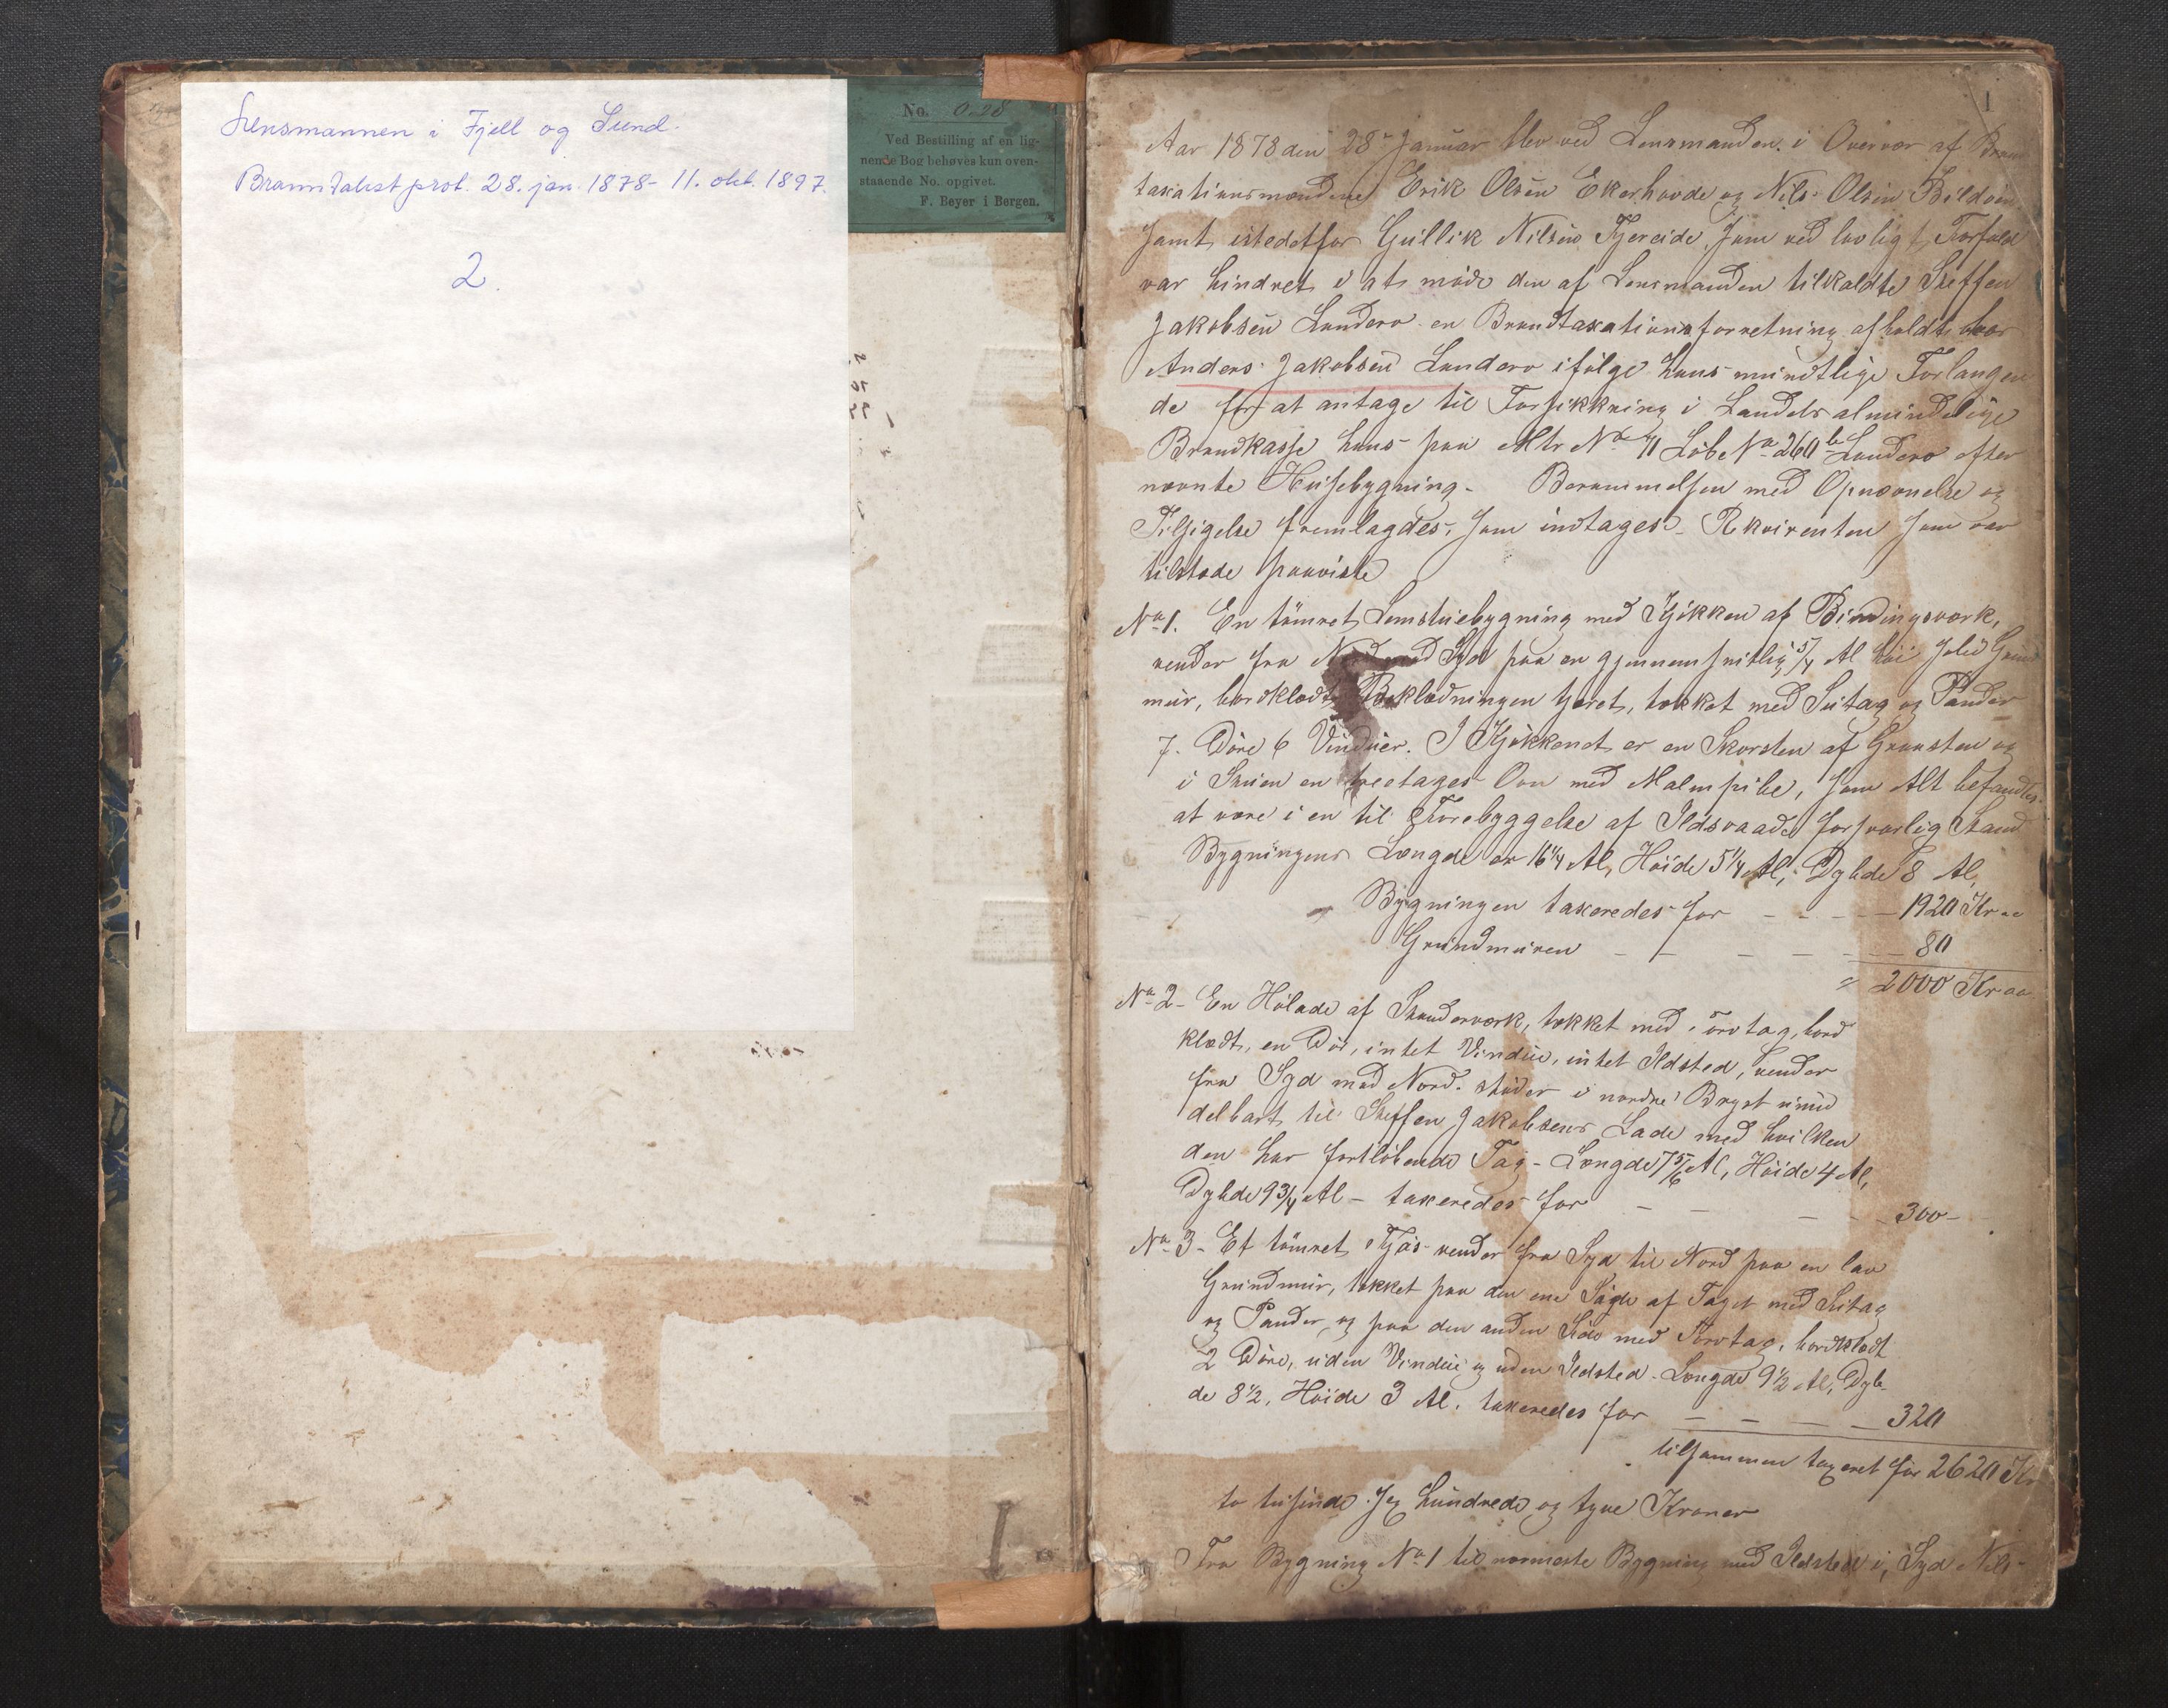 Lensmannen i Fjell og Sund.
Branntakstprot. 28. jan. 1878 - 11. okt. 1897.
2.
No. 0.28
Ved Bestilling af en lig-
nende Bog behøves kun oven-
staaende No. opgivet.
F. Beyer i Bergen.
1
Aar 1878 den 28de Januar blev ved Lensmanden i Overvær af Brand
taxationsmændene Erik Olsen Ekerhovde og Nils Olsen Bildøen
samt istedetfor Gullik Nilsen Fjereide, som ved lovligt Forfald
var hindret i at møde den af Lensmanden tilkaldte Steffen
Jakobsen Landero en Brandtaxationsforretning afholdt hos
Anders Jakobsen Landero ifølge hans mundtlige Forlangen
de for at antage til Forsikkring i Landets almindelige
Brandkasse hans paa Mtr No 71 Løbe No 260b Landero efter
nævnte Husebygning - Berammelsen med Opnævnelse og
Tilsigelse fremlagdes, som indtages - Rekvirenten som var
tilstede paaviste
No 1. En tømret Lemstuebygning med Kjøkken af Bindingsværk,
vender fra Nord mod Syd paa en gjennemsnitlig 5/4 Al høi solid Grund
mur, bordklædt, Beklædningen tjæret, tækket med Sutag og Pander
7. Døre 6 Vinduer. I Kjøkkenet er en Skorsten af Graasten og
i Stuen en treetages Ovn med Malmpibe, som Alt befandtes
at være i en til Forebyggelse af Ildsvaade forsvarlig Stand
Bygningens Længde er 16 1/4 Al, Høide 5 1/4 Al, Dybde 8 Al,
Bygningen taxeredes for - - - - 1920 Kr
Grundmuren - - - - - 80
2000 Kr
No 2 - En Hølade af Stauderværk, tækket med Torvtag, bord
klædt, en Dør, intet Vindue, intet Ildsted, vender
fra Syd mod Nord. støder i nordre Bryst umid
delbart til Steffen Jakobsens Lade med hvilken
den har fortløbende Tag - Længde 7 5/6 Al, Høide 4 Al,
Dybde 9 3/4 Al - taxeredes for - - - - 300 -
No 3 - Et tømret Fjøs vender fra Syd til Nord paa en lav
Grundmur, tækket paa den ene Side af Taget med Sutag
og Pander og paa den anden Side med Torvtag, bordklædt
2 Døre, uden Vindue og uden Ildsted - Længde 9 1/2 Al, Dyb
de 8 1/2, Høide 3 Al. taxeredes for - - - - 320
tilsammen taxeret for 2620 Kr
to tusinde sex hundrede og tyve Kroner
Fra Bygning No 1 til nærmeste Bygning med Ildsted i Syd Nils